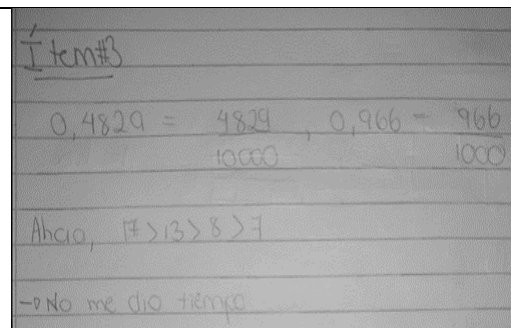 Ítem#3
0,4829 = 4829/10000 , 0,966 = 966/1000
Ahora, 17>13>8>7
→No me dio tiempo